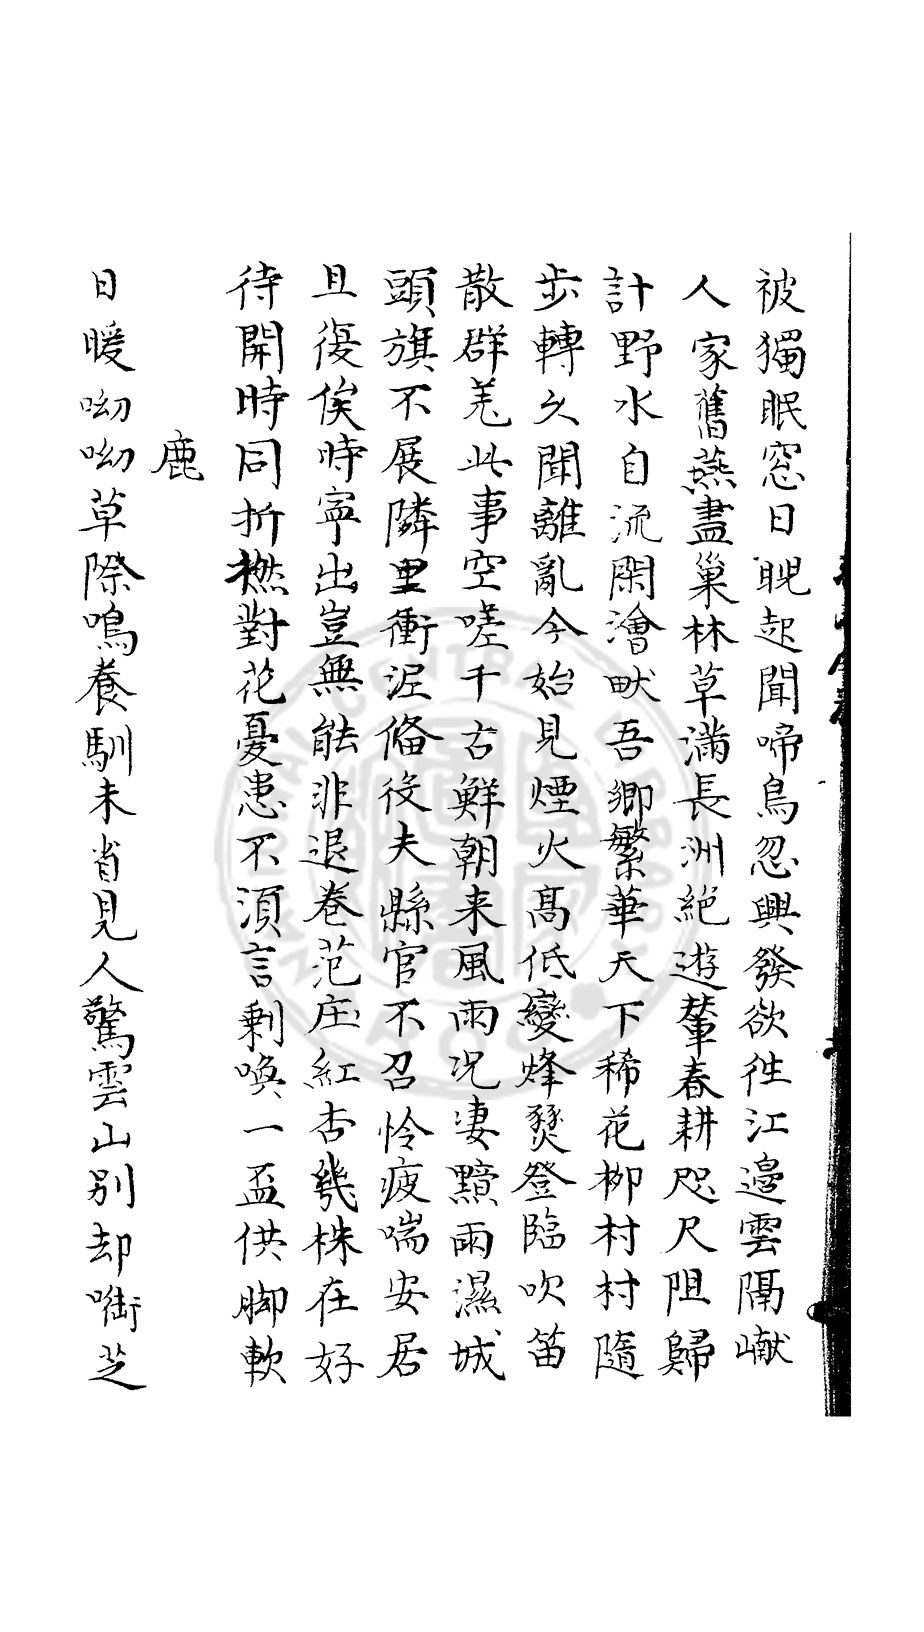 被獨眠窓日晩起聞啼鳥忽興發欲徃江邉雲隔巘
人家舊燕盡巢林草滿長洲絶遊輦春耕咫尺阻歸
計野水自流閑澮畎吾鄉繁華天下稀花柳村村隨
步轉久聞離亂今始見煙火髙低變烽燹登臨吹笛
散群羌此事空嗟千古鮮朝来風雨况凄黯雨濕城
頭旗不展隣里衝泥俻役夫縣官不召怜疲喘安居
且復俟時寧出豈無能非退卷范庄紅杏幾株在好
待開時同折撚對花憂患不湏言剩喚一盃供脚軟
鹿
日暖呦呦草際鳴養馴未省見人驚雲山别却㘅芝